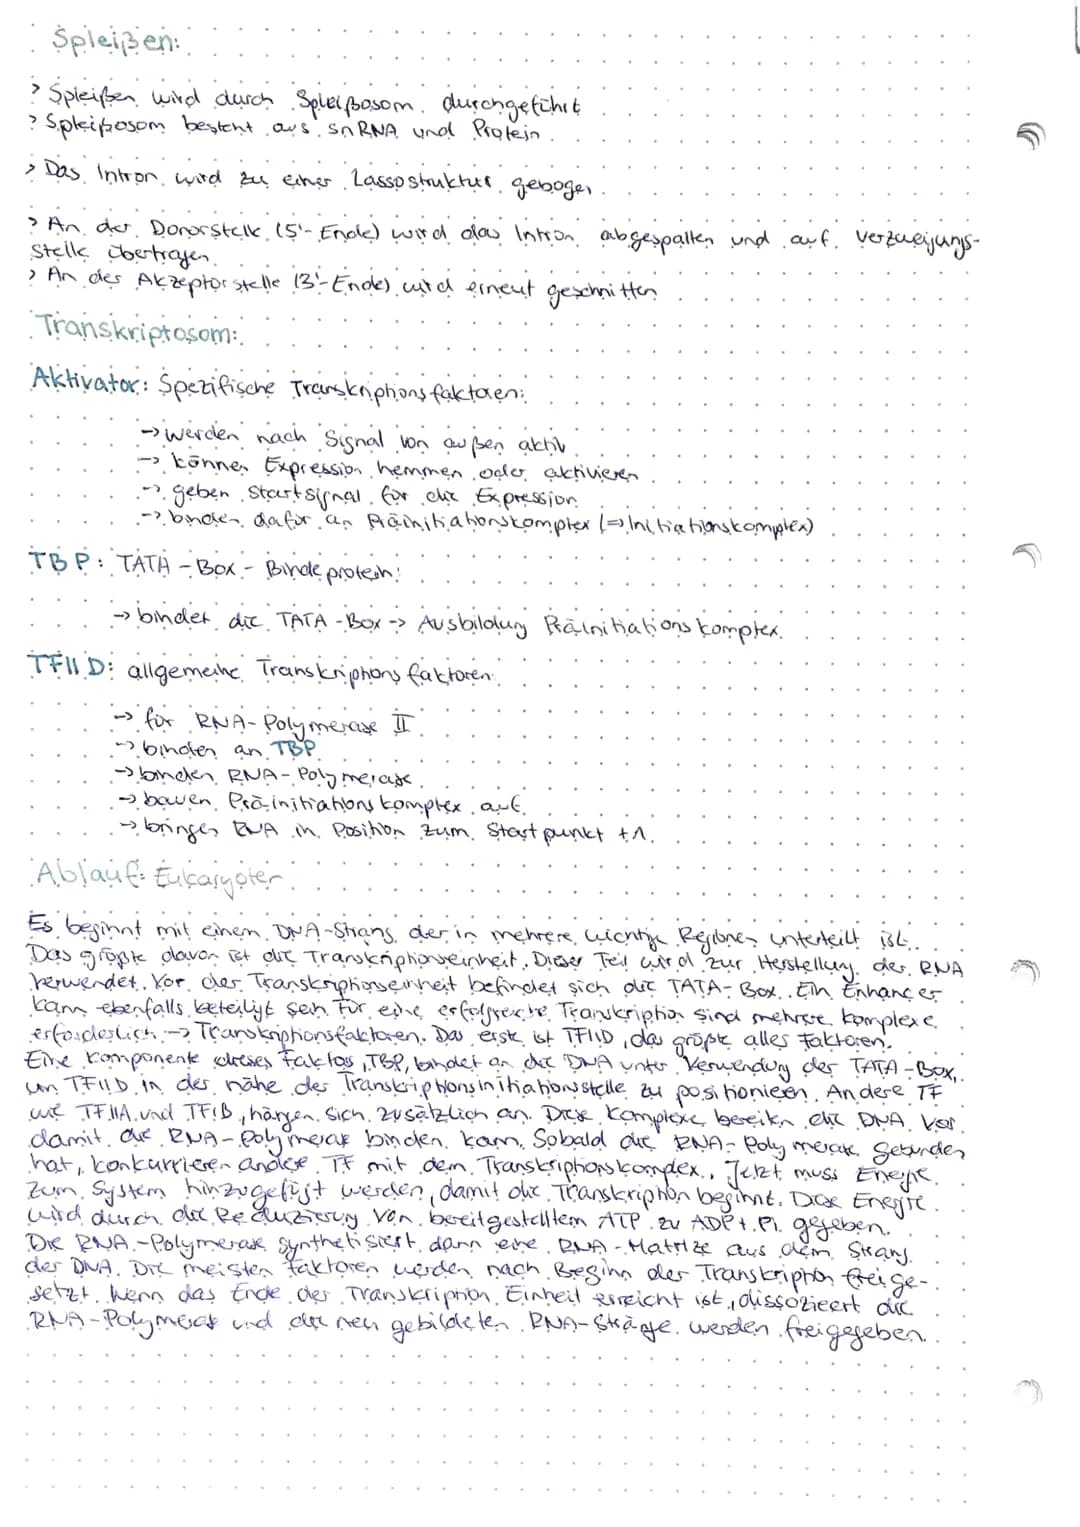 Spleißen:
> Spleißen wird durch Spleißosom durchgeführt
> Spleißosom besteht aus snRNA und Protein
> Das Intron wird zu einer Lassostruktur gebogen
> An der Donorstelle (5'-Ende) wird das Intron abgespalten und auf Verzweigungs-
stelle übertragen
> An der Akzeptorstelle (3'-Ende) wird erneut geschnitten
Transkriptosom:
Aktivator: Spezifische Transkriptionsfaktoren:
-> werden nach Signal von außen aktiv
-> können Expression hemmen oder aktivieren
-> geben Startsignal für die Expression
-> binden dafür an Präinitiationskomplex (=> Initiationskomplex)
TBP: TATA-Box-Bindeprotein:
-> bindet die TATA-Box -> Ausbildung Präinitiationskomplex
TFII D: allgemeine Transkriptionsfaktoren
-> für RNA-Polymerase II
-> binden an TBP
-> binden RNA-Polymerase
-> bauen Präinitiationskomplex auf
-> bringen RNA in Position zum Startpunkt +1
Ablauf: Eukaryoten
Es beginnt mit einem DNA-Strang, der in mehrere wichtige Regionen unterteilt ist.
Das größte davon ist die Transkriptionseinheit. Dieser Teil wird zur Herstellung der RNA
verwendet. Vor der Transkriptionseinheit befindet sich die TATA-Box. Ein Enhancer
kann ebenfalls beteiligt sein. Für eine erfolgreiche Transkription sind mehrere Komplexe
erforderlich -> Transkriptionsfaktoren. Das erste ist TFIID, das größte aller Faktoren.
Eine Komponente dieses Faktors, TBP, bindet an die DNA unter Verwendung der TATA-Box,
um TFIID in der nähe der Transkriptionsinitiationsstelle zu positionieren. Andere TF
wie TFIIA und TFIB, hängen sich zusätzlich an. Diese Komplexe bereiten die DNA vor,
damit die RNA-Polymerase binden kann. Sobald die RNA-Polymerase gebunden
hat, konkurrieren andere TF mit dem Transkriptionskomplex. Jetzt muss Energie
zum System hinzugefügt werden, damit die Transkription beginnt. Diese Energie
wird durch die Reduzierung von bereitgestelltem ATP zu ADP + Pi gegeben.
Die RNA-Polymerase synthetisiert dann eine RNA-Matrize aus dem Strang
der DNA. Die meisten Faktoren werden nach Beginn der Transkription freige-
setzt. Wenn das Ende der Transkription Einheit erreicht ist, dissoziiert die
RNA-Polymerase und die neu gebildeten RNA-Stränge werden freigegeben.